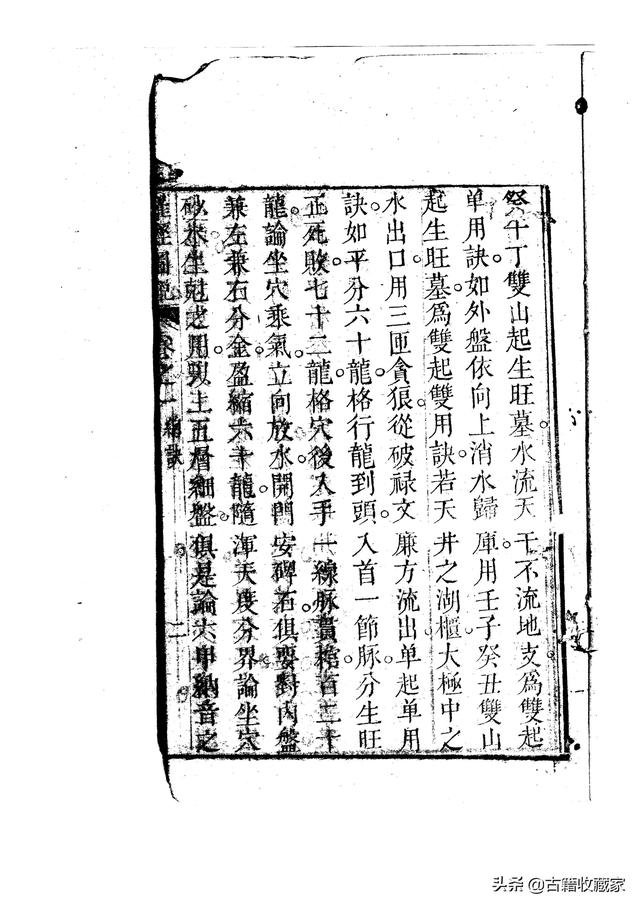 癸午丁雙山起生旺墓水流天干不流地支爲雙起
單用訣如外盤依向上消水歸庫用壬子癸丑雙山
起生旺墓爲雙起雙用訣若天井之湖櫃大極中之
水出口用三匝貪狼從破禄文廉方流出單起單用
訣如平分六十龍格行龍到頭入首一節脉分生旺
正死敗七十二龍格穴後入手一線脉貫棺百二十
龍論坐穴乘氣立向放水開門安碑石俱要對內盤
兼左兼右分金盈縮六十龍隨渾天度分界論坐穴
砂水生尅之用數上五層細盤俱是論六甲納音之
羅經圖說 卷之一 二
头条 @古籍收藏家